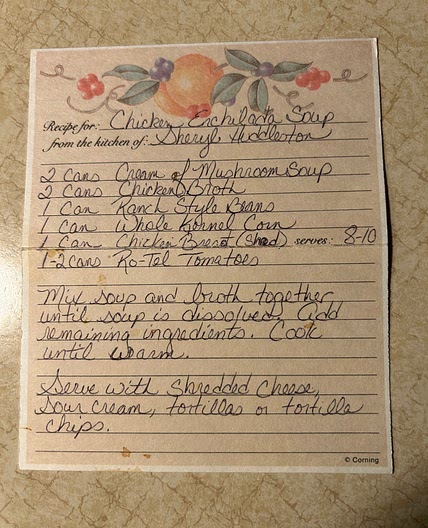 Recipe for: Chicken Enchilada Soup
from the kitchen of: Sheryl Huddleston
2 cans Cream of Mushroom Soup
2 cans Chicken Broth
1 Can Ranch Style Beans
1 can Whole Kernel Corn
1 Can Chicken Breast (Shred) serves: 8-10
1-2 cans Ro-Tel Tomatoes
Mix soup and broth together
until soup is dissolved. Add
remaining ingredients. Cook
until warm.
Serve with Shredded Cheese,
Sour cream, tortillas or tortilla
chips.
© Corning